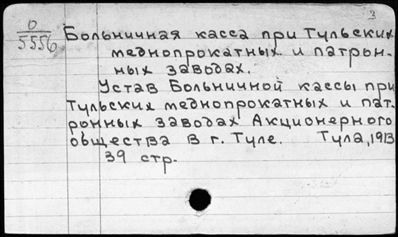 3
0
5556
Больничная касса при Тульских
меднопрокатных и патрон-
ных заводах.
Устав Больничной кассы при
Тульских меднопрокатных и пат-
ронных заводах Акционерного
общества в г. Туле. Тула, 1913
39 стр.